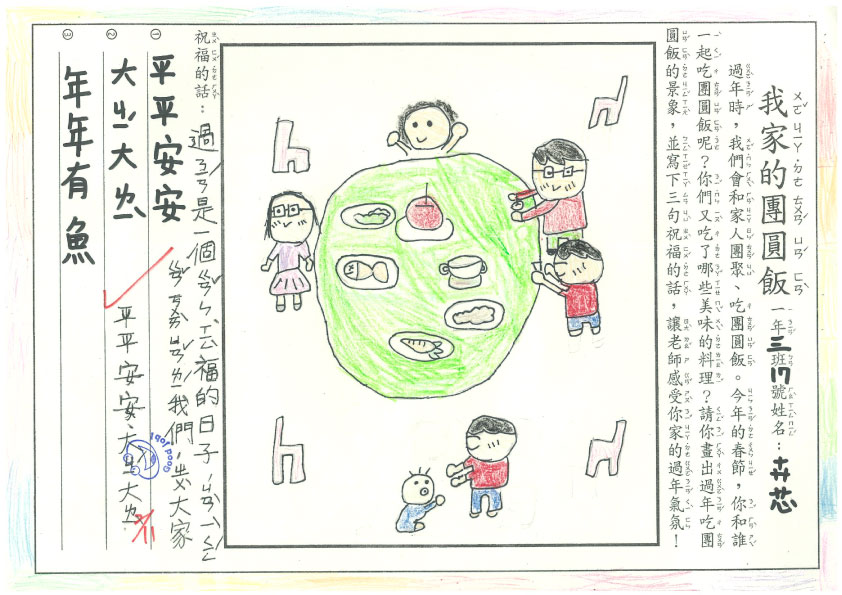 我家的團圓飯
一年三班17號姓名：卉芯
過年時，我們會和家人團聚、吃團圓飯。今年的春節，你和誰
一起吃團圓飯呢？你們又吃了哪些美味的料理？請你畫出過年吃團
圓飯的景象，並寫下三句祝福的話，讓老師感受你家的過年氣氛！
祝福的話：過ㄋㄧㄢˊ是一個福的日子，
我們ㄓㄨˋ大家
平平安安、大ㄐㄧˊ大ㄌㄧˋ
① 平平安安
② 大ㄐㄧˊ大ㄌㄧˋ
③ 年年有魚
Good Job!